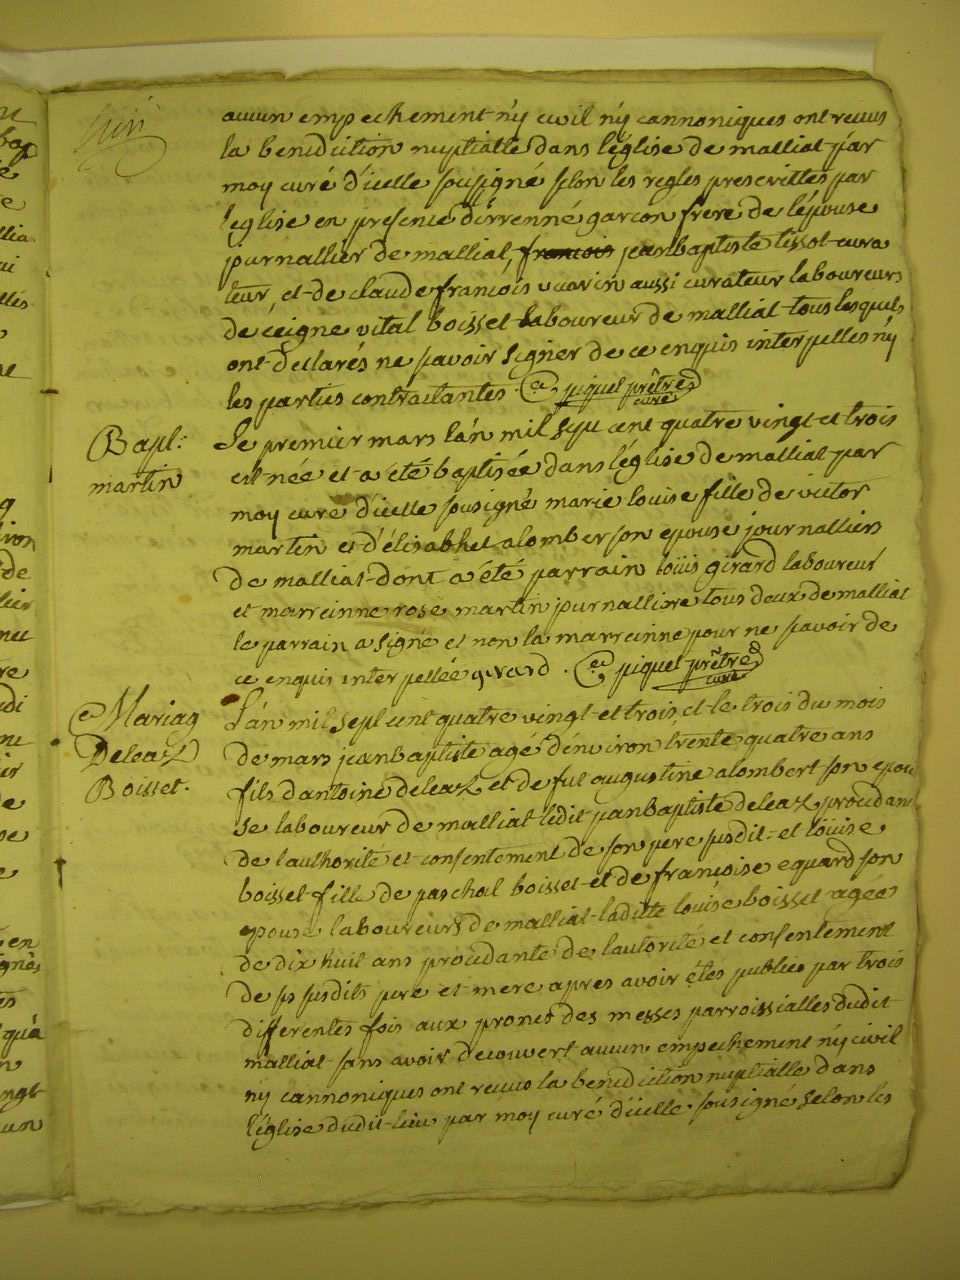 aucun empechement nÿ civil nÿ cannoniques ont reçus
la benidiction nuptialle dans léglise de malliat par
moy curé d'icelle sousigné selon les regles prescrittes par
léglise en presence garcon frere de lépouse
journallier de malliat, francois jeanbaptiste tissot cura
teur, et de claude francois aussi curateur laboureurs
de ceigne vital boisset laboureur de malliat tous lesquels
ont declarés ne savoir signer de ce enquis interpelles nÿ
les parties contractantes. piquet prêtre
curé
Bapt:
martin
Le premier mars lán mil sept cent quatre vingt et trois
est née et a été baptisée dans léglise de malliat par
moy curé d'icelle sousigné marie louise fille de victor
martin et d'élisabhet alomber son epouse journalliers
de malliat dont a été parrain loüis girard laboureur
et marreinne rose martin journalliere tous deux de malliat
le parrain a signé et non la marreinne pour ne savoir de
ce enquis interpellée girard. piquet prêtre
curé
Mariag
Deleaz
Boisset.
L'án mil sept cent quatre vingt et trois et le trois du mois
de mars jeanbaptiste agé d'environ trente quatre ans
fils dantoine deleaz et de fut augustine alombert son epou
se laboureur de malliat ledit jeanbaptiste deleaz procedant
de l'authorité et consentement de son pere susdit et loüise
boisset fille de paschal boisset et de francoise eguard son
epouse laboureurs de malliat laditte loüise boisset agée
de dix huit ans procedante de lautorité et consentement
de ses susdits pere et mere apres avoir étés publies par trois
differentes fois aux prones des messes parroissialles dudit
malliat sans avoir decouvert aucun empechement nÿ civil
nÿ cannoniques ont recus la benidiction nuptialle dans
léglise dudit lieu par moy curé d'icelle sousigné selon les